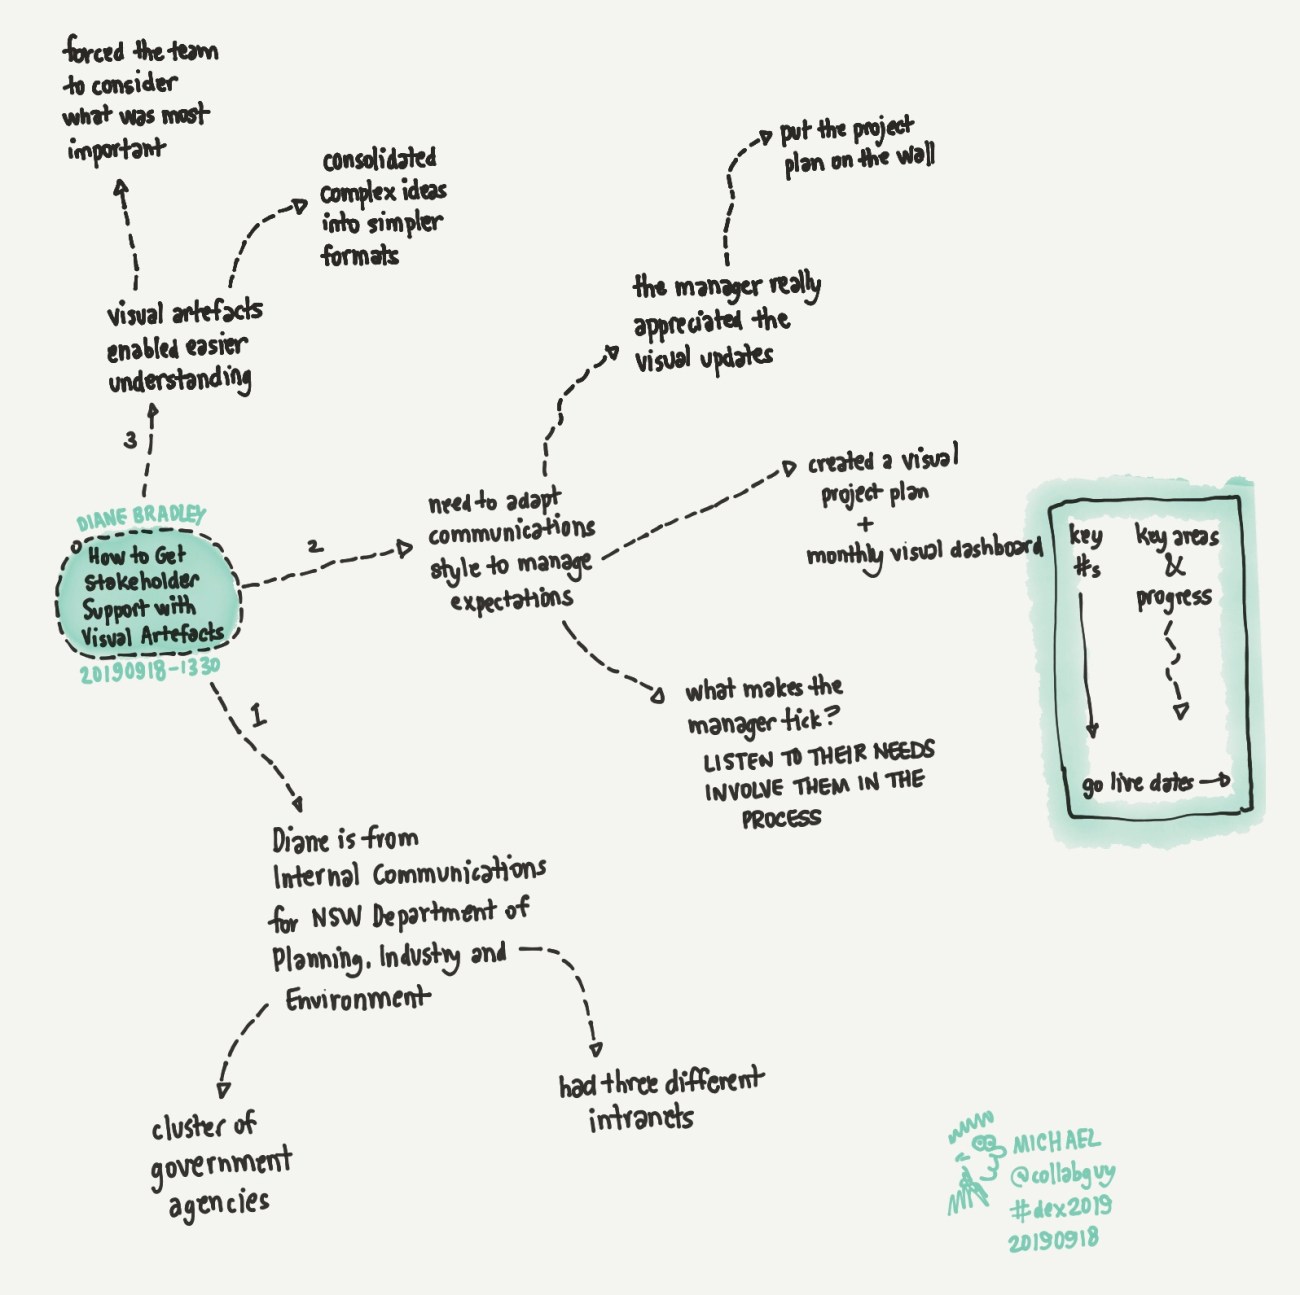 forced the team
to consider
what was most
important
consolidated
complex ideas
into simpler
formats
put the project
plan on the wall
visual artefacts
enabled easier
understanding
the manager really
appreciated the
visual updates
3
DIANE BRADLEY
How to Get
Stakeholder
Support with
Visual Artefacts
20190918-1330
2
need to adapt
communications
style to manage
expectations
created a visual
project plan
+
monthly visual dashboard
key
#s
key areas
&
progress
go live dates
what makes the
manager tick?
LISTEN TO THEIR NEEDS
INVOLVE THEM IN THE
PROCESS
1
Diane is from
Internal Communications
for NSW Department of
Planning, Industry and
Environment
cluster of
government
agencies
had three different
intranets
MICHAEL
@collabguy
#dex2019
20190918